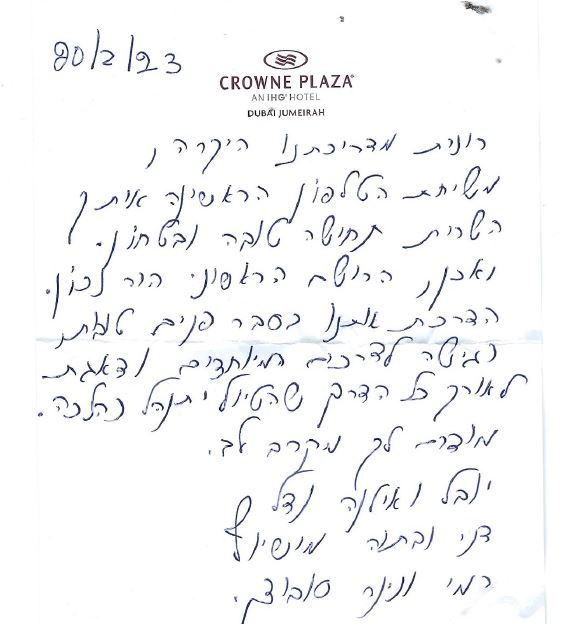 20/2/23
CROWNE PLAZA
AN IHG® HOTEL
DUBAI JUMEIRAH
רונית מדריכתנו היקרה,
משיחת הטלפון הראשונה איתך
השרית תחושה טובה ובטחון.
ואכן, הרושם הראשוני היה נכון.
הדרכת אותנו בסבר פנים טובות,
רגישה לצרכים המיוחדים ודאגת
לאורך כל הדרך שהטיול יתנהל כהלכה.
מודים לך מקרב לב.
יובל ואילנה נדל
דני ובתיה
רמי ונירה